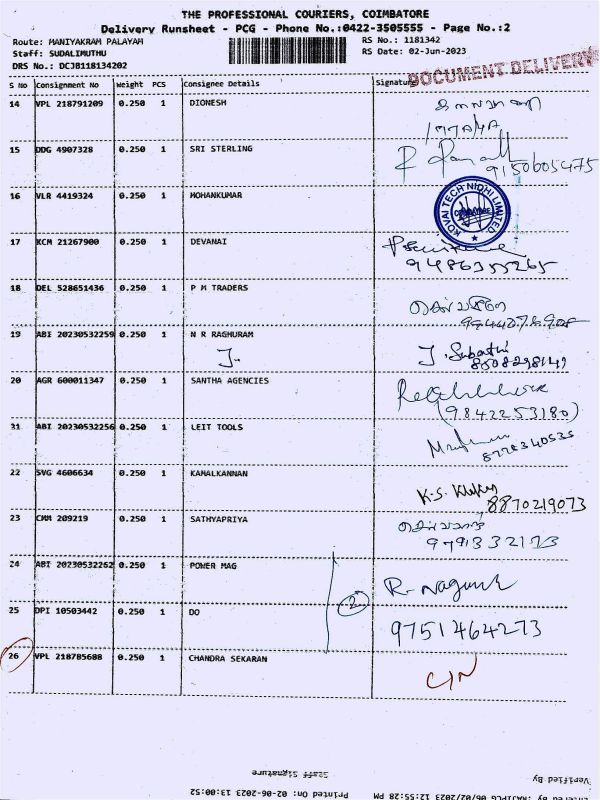 THE PROFESSIONAL COURIERS, COIMBATORE
Delivery Runsheet - PCG - Phone No.:0422-3505555 - Page No.:2
Route: MANIYAKRAM PALAYAM RS No.: 1181342
Staff: SUDALIMUTHU RS Date: 02-Jun-2023
DRS No.: DCJB118134202
DOCUMENT DELIVERY
S No Consignment No Weight PCS Consignee Details Signature
14 VPL 218791209 0.250 1 DIONESH
15 DDG 4907328 0.250 1 SRI STERLING
9150605475
16 VLR 4419324 0.250 1 MOHANKUMAR
KOVAI TECH NIDHI LIMITED
17 KCM 21267900 0.250 1 DEVANAI
9486355265
18 DEL 528651436 0.250 1 P M TRADERS
19 ABI 20230532259 0.250 1 N R RAGHURAM
J. J. Subathi
8508298149
20 AGR 600011347 0.250 1 SANTHA AGENCIES
(9842253180)
31 ABI 20230532256 0.250 1 LEIT TOOLS
8778340535
22 SVG 4606634 0.250 1 KAMALKANNAN
K.S.
8870219073
23 CMM 209219 0.250 1 SATHYAPRIYA
9791332173
24 ABI 20230532262 0.250 1 POWER MAG
2 R.
25 DPI 10503442 0.250 1 DO
9751464273
26 VPL 218785688 0.250 1 CHANDRA SEKARAN
Staff Signature
Verified By
Printed On: 02-06-2023 13:00:52
Entered By :RAJIPCG 06/02/2023 12:55:28 PM